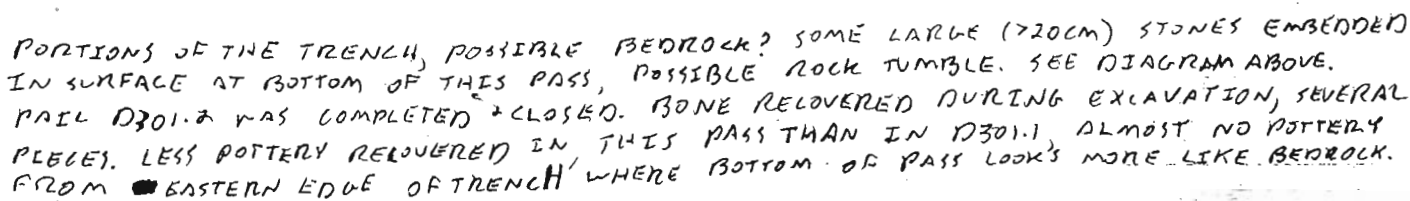 PORTIONS OF THE TRENCH, POSSIBLE BEDROCK? SOME LARGE (>20CM) STONES EMBEDDED
IN SURFACE AT BOTTOM OF THIS PASS, POSSIBLE ROCK TUMBLE. SEE DIAGRAM ABOVE.
PAIL D301.2 WAS COMPLETED & CLOSED. BONE RECOVERED DURING EXCAVATION, SEVERAL
PIECES. LESS POTTERY RECOVERED IN THIS PASS THAN IN D301.1, ALMOST NO POTTERY
FROM EASTERN EDGE OF TRENCH, WHERE BOTTOM OF PASS LOOKS MORE LIKE BEDROCK.